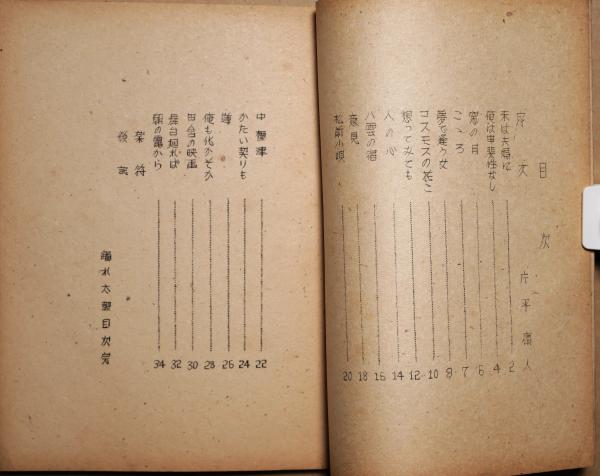 目次
序文 片平庸人
末は夫婦に 2
俺は甲斐性なし 4
窓の月 6
こころ 7
夢で逢う女 8
コスモスの花こ 10
想ってみても 12
人の心 14
八雲の宿 16
意見 18
松前小唄 20
中標津 22
かたい契りも 24
噂 26
俺も化かそか 28
田舎の映画 30
舞台廻れば 32
駅の窓から 34
楽符
後記
太郎目次 完